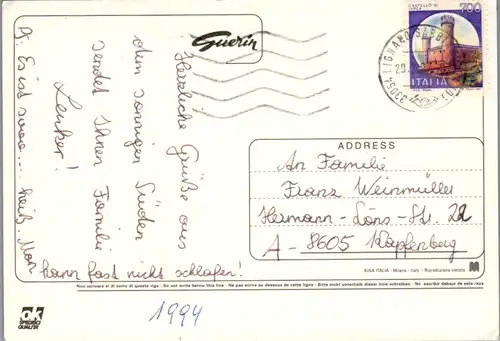 Guerin
CASTELLO DI
700
ITALIA
33054 LIGNANO SABB
Herzliche Grüße aus
dem sonnigen Süden
sendet Ihnen Familie
Lenker!
P. Es ist sooo... heiß. Man
kann fast nicht schlafen!
ADDRESS
An Familie
Franz Weinmüller
Hermann-Löns-Str. 22
A-8605 Kapfenberg
KINA ITALIA - Milano - Italy - Riproduzione vietata
Non scrivere al di sotto di questa riga - Do not write below this line - Ne pas écrire au dessous de cette ligne - Bitte nicht unterhalb dieser linie schreiben - No escribir debajo de esta raya
OK
SPECIFICI
QUALITÀ
1994